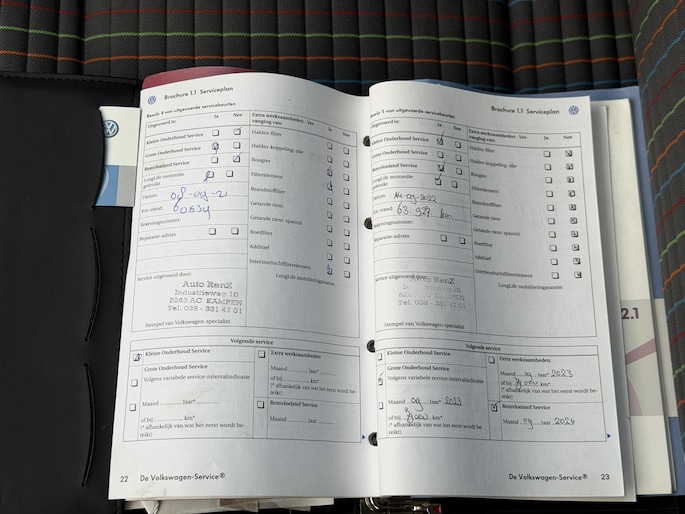 Brochure 1.1 Serviceplan
Bewijs 4 van uitgevoerde servicebeurten
Uitgevoerd is:
Ja
Nee
Kleine Onderhoud Service
Grote Onderhoud Service
Remvloeistof Service
LongLife motorolie
gebruikt
Datum:
Km-stand:
60534
Rekeningnummer:
Reparatie-advies
Extra werkzaamheden - Ver-
vanging van:
Ja
Nee
Haldex-filter
Haldex-koppeling: olie
Bougies
Filterelement
Brandstoffilter
Getande riem
Getande riem: spanrol
Roetfilter
Additief
Interieurluchtfilterelement
LongLife mobiliteitsgarantie:
Service uitgevoerd door:
Auto RenZ
Industrieweg 10
8263 AC KAMPEN
Tel. 038 - 331 47 01
Stempel van Volkswagen-specialist
Volgende service
Kleine Onderhoud Service
Grote Onderhoud Service
Volgens variabele service-intervalindicatie
Maand
jaar*
of bij
km*
(* afhankelijk van wat het eerst wordt be-
reikt)
Extra werkzaamheden
Maand
jaar*
of bij
km*
(* afhankelijk van wat het eerst wordt be-
reikt)
Remvloeistof Service
Maand
jaar
22 De Volkswagen-Service®
Brochure 1.1 Serviceplan
Bewijs 5 van uitgevoerde servicebeurten
Uitgevoerd is:
Ja
Nee
Kleine Onderhoud Service
Grote Onderhoud Service
Remvloeistof Service
LongLife motorolie
gebruikt
Datum:
14-09-2022
Km-stand:
63.927 km
Rekeningnummer:
Reparatie-advies
Extra werkzaamheden - Ver-
vanging van:
Ja
Nee
Haldex-filter
Haldex-koppeling: olie
Bougies
Filterelement
Brandstoffilter
Getande riem
Getande riem: spanrol
Roetfilter
Additief
Interieurluchtfilterelement
LongLife mobiliteitsgarantie:
Service uitgevoerd door:
Auto RenZ
Industrieweg 10
KAMPEN
Tel. 038 - 331 47 01
Stempel van Volkswagen-specialist
Volgende service
Kleine Onderhoud Service
Grote Onderhoud Service
Volgens variabele service-intervalindicatie
Maand 09 jaar* 2023
of bij
km*
(* afhankelijk van wat het eerst wordt be-
reikt)
Extra werkzaamheden
Maand 09 jaar* 2023
of bij
km*
(* afhankelijk van wat het eerst wordt be-
reikt)
Remvloeistof Service
Maand 09 jaar 2024
De Volkswagen-Service® 23
2.1